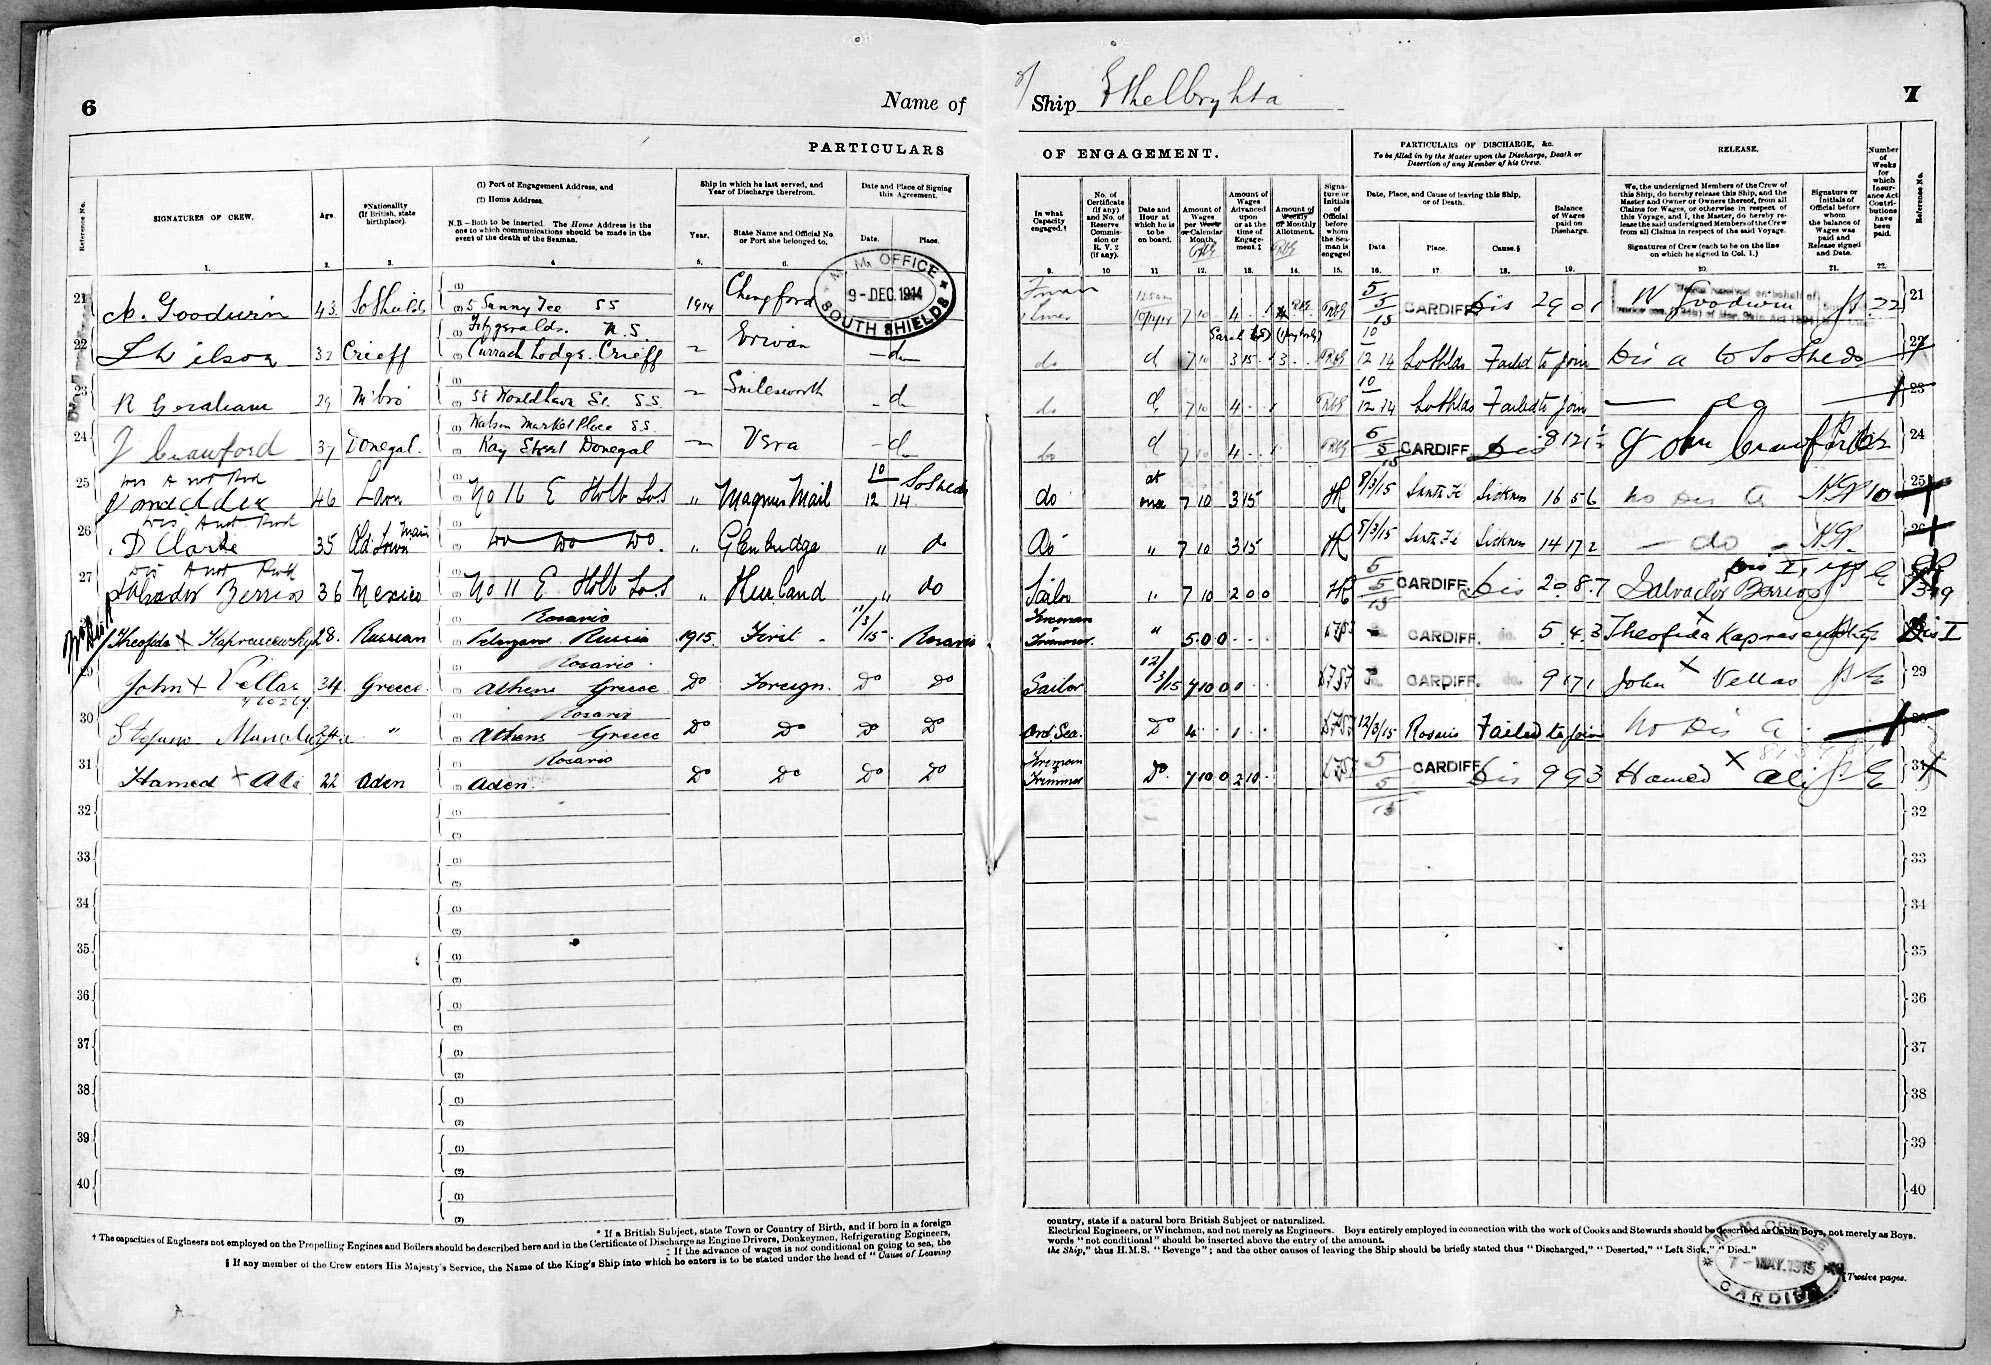 6
Name of
PARTICULARS
Reference No.
SIGNATURES OF CREW.
Age.
*Nationality
(If British, state
birthplace).
(1) Port of Engagement Address, and
(2) Home Address.
N.B.—Both to be inserted. The Home Address is the
one to which communications should be made in the
event of the death of the Seaman.
Ship in which he last served, and
Year of Discharge therefrom.
Year.
State Name and Official No.
or Port she belonged to.
Date and Place of Signing
this Agreement.
Date.
Place.
1. 2. 3. 4 5. 6.
M. M. OFFICE
9-DEC.1914
SOUTH SHIELDS
21 Goodwin 43 So Shields (1)
(2) 5 Sunny Tce SS 1914 Chengford
22 Wilson 32 Crieff (1) Fitzgeralds. N.S.
(2) Currach Lodge. Crieff Erivan do
23 R Graham 29 M'bro (1)
(2) St. S.S. Smilesworth do
24 J Crawford 37 Donegal. (1) Watson Market Place S.S.
(2) Kay Street Donegal Vera do
25 Dis A not Prod
46 (1)
(2) No 16 E Holb SoS " Magnus Mail 10/12 14 So Sheds
26 Dis A not Prod
D Clarke 35 Old Town (1)
(2) Do Do Do. " Glenbridge " do
27 Dis A not Prod
Salvador Berrios 36 Mexico (1)
(2) No 11 E Holb SoS " " do
No Dis A
Theofida X 28. Russian (1) Rosario
(2) Russia 1915. First 11/3/15 Rosario
John X Vellas 34 Greece. (1) Rosario.
(2) Athens Greece Do Foreign. Do Do
30 " (1) Rosario
(2) Athens Greece Do Do Do Do
31 Hamed X Ali 22 Aden (1) Rosario
(2) Aden. Do Do Do Do
32 (1)
(2)
33 (1)
(2)
34 (1)
(2)
35 (1)
(2)
36 (1)
(2)
37 (1)
(2)
38 (1)
(2)
39 (1)
(2)
40 (1)
(2)
* If a British Subject, state Town or Country of Birth, and if born in a foreign
† The capacities of Engineers not employed on the Propelling Engines and Boilers should be described here and in the Certificate of Discharge as Engine Drivers, Donkeymen, Refrigerating Engineers,
‡ If the advance of wages is not conditional on going to sea, the
§ If any member of the Crew enters His Majesty's Service, the Name of the King's Ship into which he enters is to be stated under the head of "Cause of Leaving
Ship Ethelbryhta
7
OF ENGAGEMENT.
PARTICULARS OF DISCHARGE, &c.
To be filled in by the Master upon the Discharge, Death or
Desertion of any Member of his Crew.
RELEASE.
In what
Capacity
engaged.†
No. of
Certificate
(if any)
and No. of
Reserve
Commis-
sion or
R. V. 2
(if any).
Date and
Hour at
which he is
to be
on board.
Amount of
Wages
per Week
or Calendar
Month.
Amount of
Wages
Advanced
upon
or at the
time of
Engage-
ment.‡
Amount of
Weekly
or Monthly
Allotment.
Signa-
ture or
Initials
of
Official
before
whom
the Sea-
man is
engaged
Date, Place, and Cause of leaving this Ship,
or of Death.
Date.
Place.
Cause.§
Balance
of Wages
paid on
Discharge.
We, the undersigned Members of the Crew of
this Ship, do hereby release this Ship, and the
Master and Owner or Owners thereof, from all
Claims for Wages, or otherwise in respect of
this Voyage, and I, the Master, do hereby re-
lease the said undersigned Members of the Crew
from all Claims in respect of the said Voyage.
Signatures of Crew (each to be on the line
on which he signed in Col. 1.)
Signature or
Initials of
Official before
whom
the balance of
Wages was
paid and
Release signed
and Date.
Number
of
Weeks
for
which
Insur-
ance Act
Contri-
butions
have
been
paid.
Reference No.
9. 10 11 12. 13. 14. 15. 16. 17. 18. 19. 20. 21. 22.
7 10 4 5/5/15 CARDIFF Dis 29 0 1 Goodwin 22 21
do d 7 10 3 15 3 10/12 14 So Shlds Failed to join Dis a to So Sheds 22
do d 7 10 4 10/12 14 So Shlds Failed to join do 23
do d 7 10 4 5/5/15 CARDIFF. Dis John Crawford 24
do at once 7 10 3 15 8/3/15 Santa Fé Sickness 16 5 6 No Dis A 10 25
Do " 7 10 3 15 8/3/15 Santa Fé Sickness 14 17 2 do 26
Sailor " 7 10 2 0 0 5/5/15 CARDIFF Dis 20 8 7 Salvador Berrios
Fireman
Trimmer. " 5 0 0 CARDIFF. do. 5 4 3 Theofida X Dis I
Sailor 12/3/15 7 10 0 CARDIFF. do. 9 17 1 John X Vellas 29
Ord. Sea. Do 4 1 12/3/15 Rosario Failed to join No Dis A 30
Fireman
Trimmer Do. 7 10 0 2 10 5/5/15 CARDIFF Dis 9 9 3 Hamed X Ali 31
32
33
34
35
36
37
38
39
40
country, state if a natural born British Subject or naturalized.
Electrical Engineers, or Winchmen, and not merely as Engineers. Boys entirely employed in connection with the work of Cooks and Stewards should be described as Cabin Boys, not merely as Boys.
words "not conditional" should be inserted above the entry of the amount.
the Ship," thus H.M.S. "Revenge"; and the other causes of leaving the Ship should be briefly stated thus "Discharged," "Deserted," "Left Sick," "Died."
7-MAY.1915
CARDIFF
[Twelve pages.